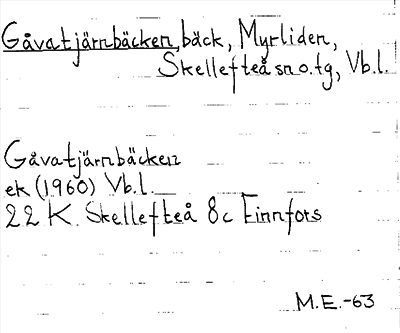 Gåvatjärnbäcken, bäck, Myrliden,
Skellefteå sn o. tg, Vb.l.
Gåvatjärnbäcken
ek (1960) Vb.l.
22 K. Skellefteå 8c Finnfors
M.E.-63